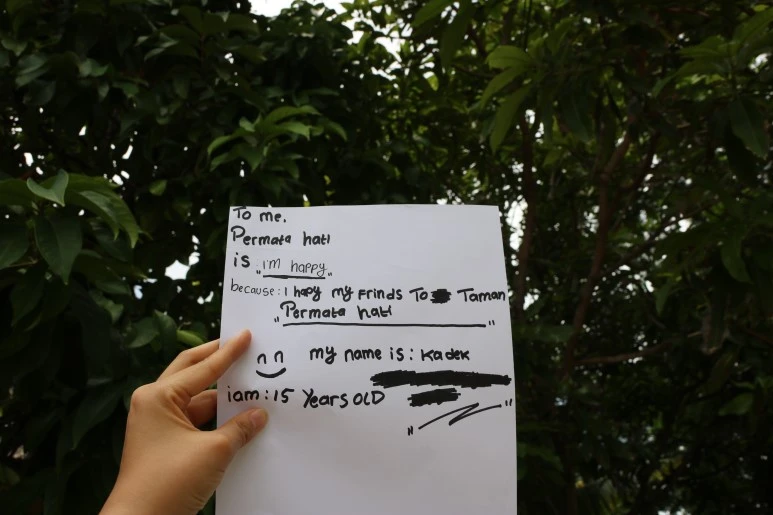 To me.
Permata hati
is "i'm happy"
because: I hapy my Frinds To Taman
"Permata hati"
my name is: Kadek
iam: 15 Years OLD